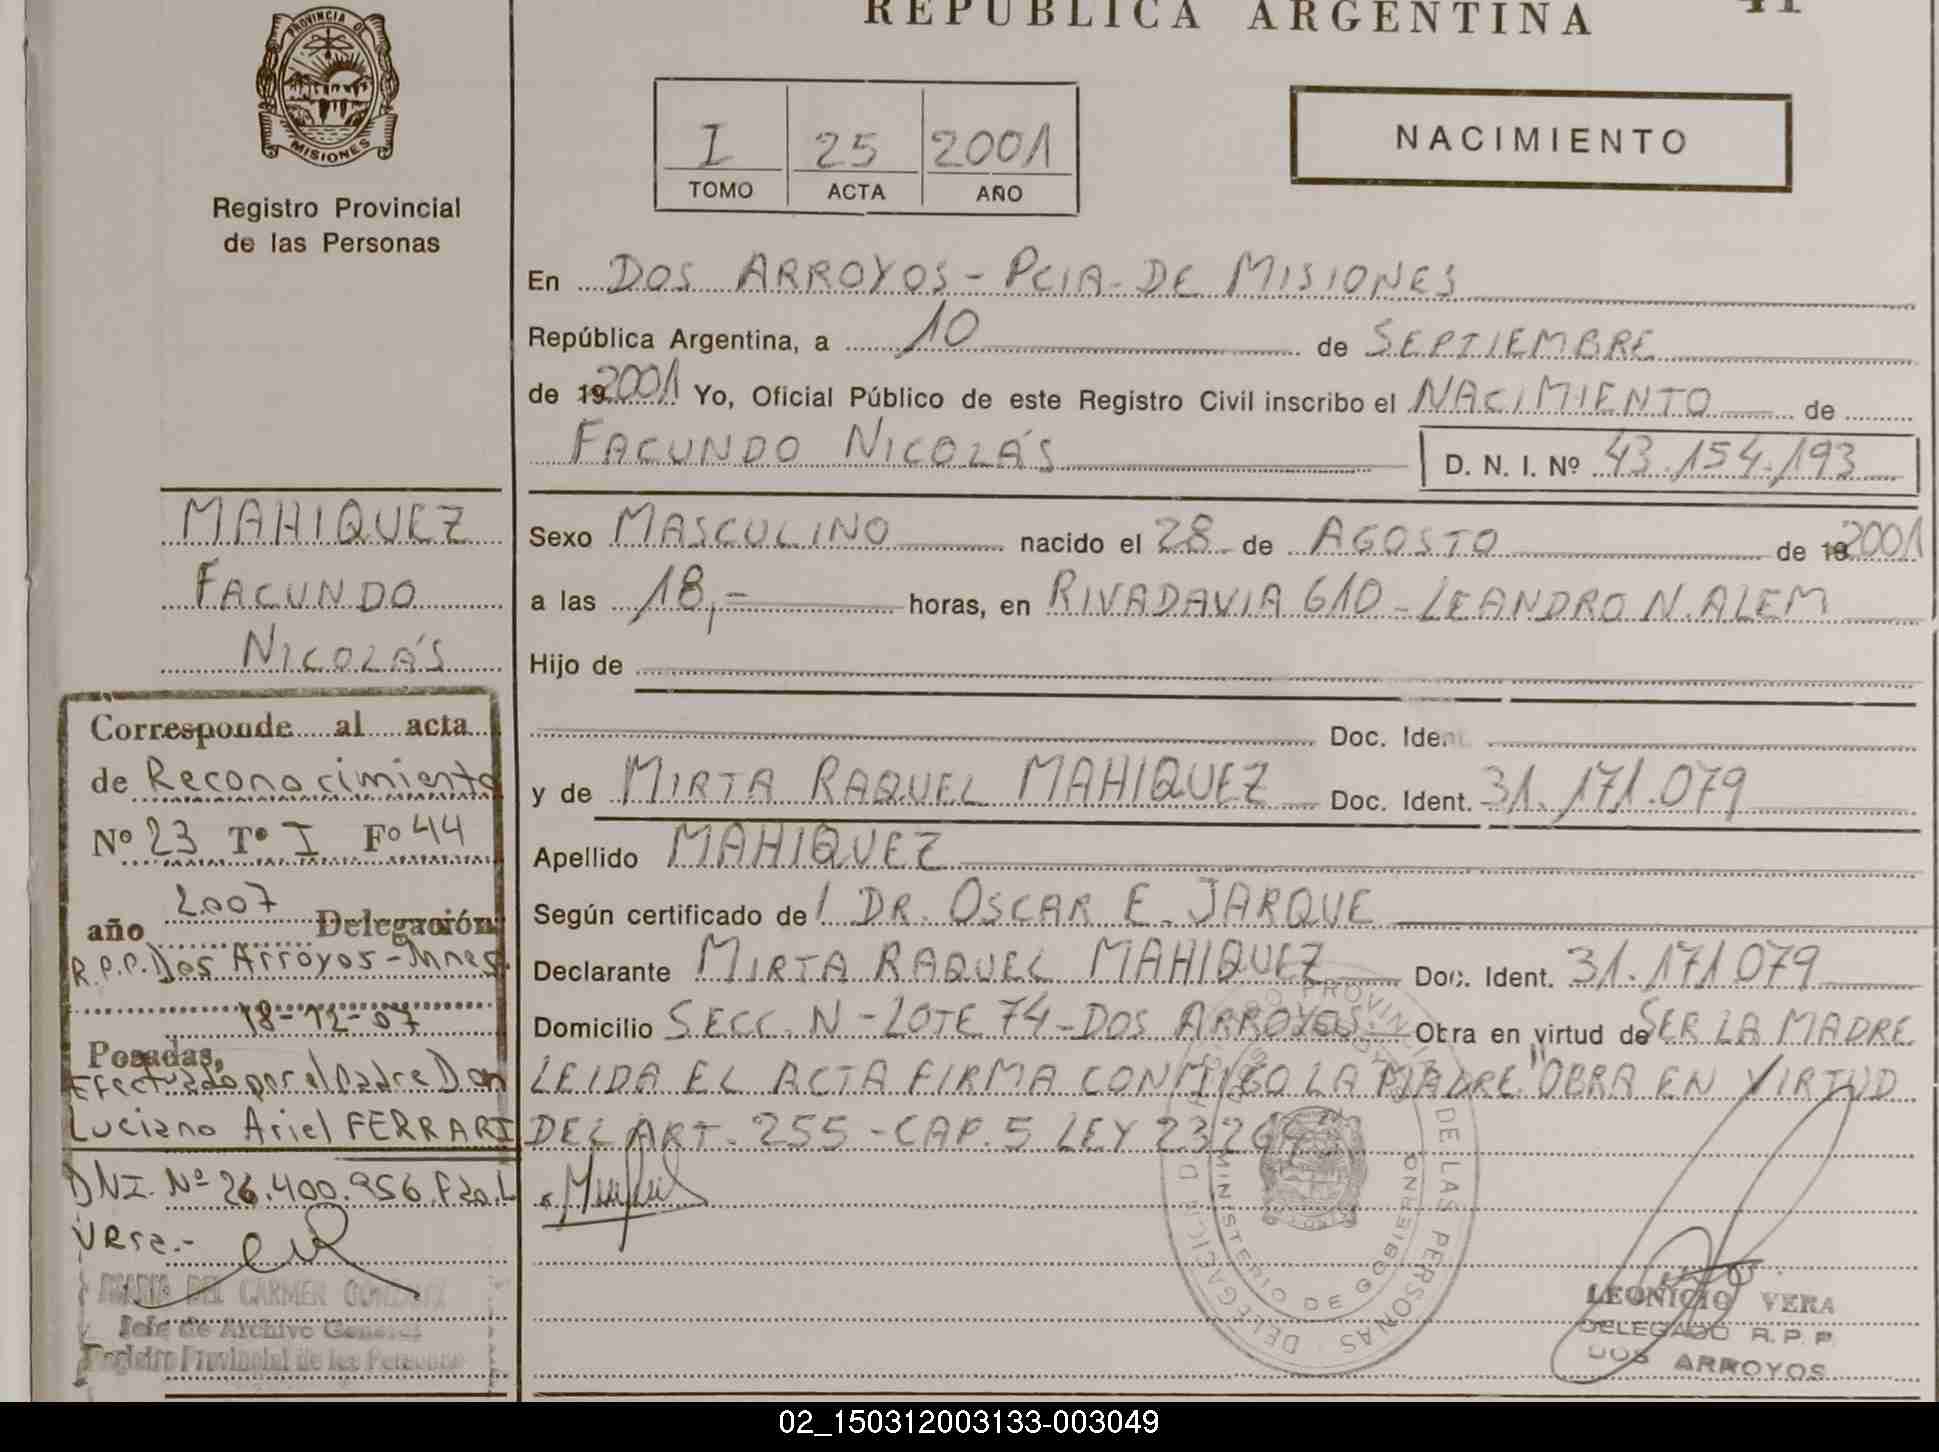 REPUBLICA ARGENTINA 41
PROVINCIA DE
MISIONES
Registro Provincial
de las Personas
I 25 2001
TOMO ACTA AÑO
NACIMIENTO
En DOS ARROYOS - PCIA. DE MISIONES
República Argentina, a 10 de SEPTIEMBRE
de 19 2001 Yo, Oficial Público de este Registro Civil inscribo el NACIMIENTO de
FACUNDO NICOLÁS D. N. I. Nº 43.154.193
MAHIQUEZ
FACUNDO
NICOLÁS
Sexo MASCULINO nacido el 28 de AGOSTO de 19 2001
a las 18,- horas, en RIVADAVIA 610 - LEANDRO N. ALEM
Hijo de
Doc. Ident.
y de MIRTA RAQUEL MAHIQUEZ Doc. Ident. 31.171.079
Apellido MAHIQUEZ
Según certificado de / DR. OSCAR E. JARQUE
Declarante MIRTA RAQUEL MAHIQUEZ Doc. Ident. 31.171.079
Domicilio SECC. N - LOTE 74 - DOS ARROYOS Obra en virtud de SER LA MADRE
LEIDA EL ACTA FIRMA CONMIGO LA MADRE "OBRA EN VIRTUD
DEL ART. 255 - CAP. 5 LEY 23264
Corresponde al acta
de Reconocimiento
Nº 23 Tº I Fº 44
año 2007 Delegación
R.P.P. Dos Arroyos - Mnes.
18-12-07
Posadas,
Efectuado por el Padre Don
Luciano Ariel FERRARI
DNI. Nº 26.400.956
MARIA DEL CARMEN
Jefe de Archivo General
Registro Provincial de las Personas
REGISTRO PROVINCIAL DE LAS PERSONAS - DELEGACION DOS ARROYOS
MINISTERIO DE GOBIERNO
LEONICIO VERA
DELEGADO R. P. P.
DOS ARROYOS
02_150312003133-003049